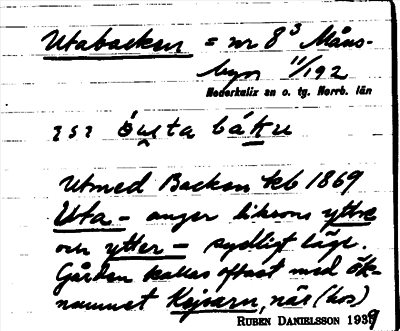 Utabacken = nr 8³ Måns-
byn 11/192
Nederkalix sn o. tg. Norrb. län
Utmed Backen kb 1869
Uta- anger liksom yttre
och ytter- sydligt läge.
Gården kallas oftast med ök-
namnet Kejsarn, när (hos)
RUBEN DANIELSSON 1939